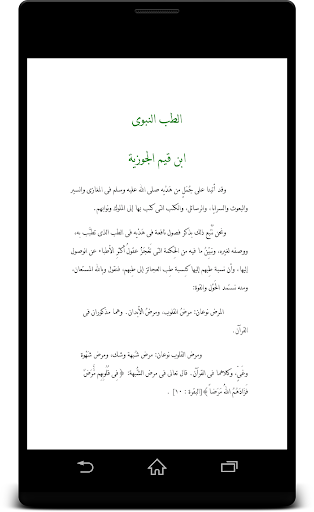 الطب النبوى
ابن قيم الجوزية
وقد أتينا على جُمَلٍ من هَدْيِه صلى الله عليه وسلم فى المغازى والسير
والبعوث والسرايا، والرسائل، والكتب التى كتب بها إلى الملوك ونوابهم.
ونحن نُتْبع ذلك بذكر فصول نافعة فى هَدْيِه فى الطب الذى تطبَّب به،
ووصفه لغيره، ونبيِّنُ ما فيه من الحِكمة التى تَعْجَزُ عقولُ أكثرِ الأطباء عن الوصول
إليها، وأن نسبة طبهم إليها كنسبة طب العجائز إلى طبهم، فنقول وبالله المستعان،
ومنه نستمد الحَوْل والقوة:
المرض نوعان: مرض القلوب، ومرضُ الأبدان. وهما مذكوران فى
القرآن.
ومرض القلوب نوعان: مرض شُبهة وشك، ومرض شَهْوة
وغَىٍّ، وكلاهما فى القرآن. قال تعالى فى مرض الشُّبهة: ﴿ فِى قُلُوبِهِم مَّرَضٌ
فَزَادَهُمُ اللهُ مَرَضًا ﴾[البقرة : ١٠] .